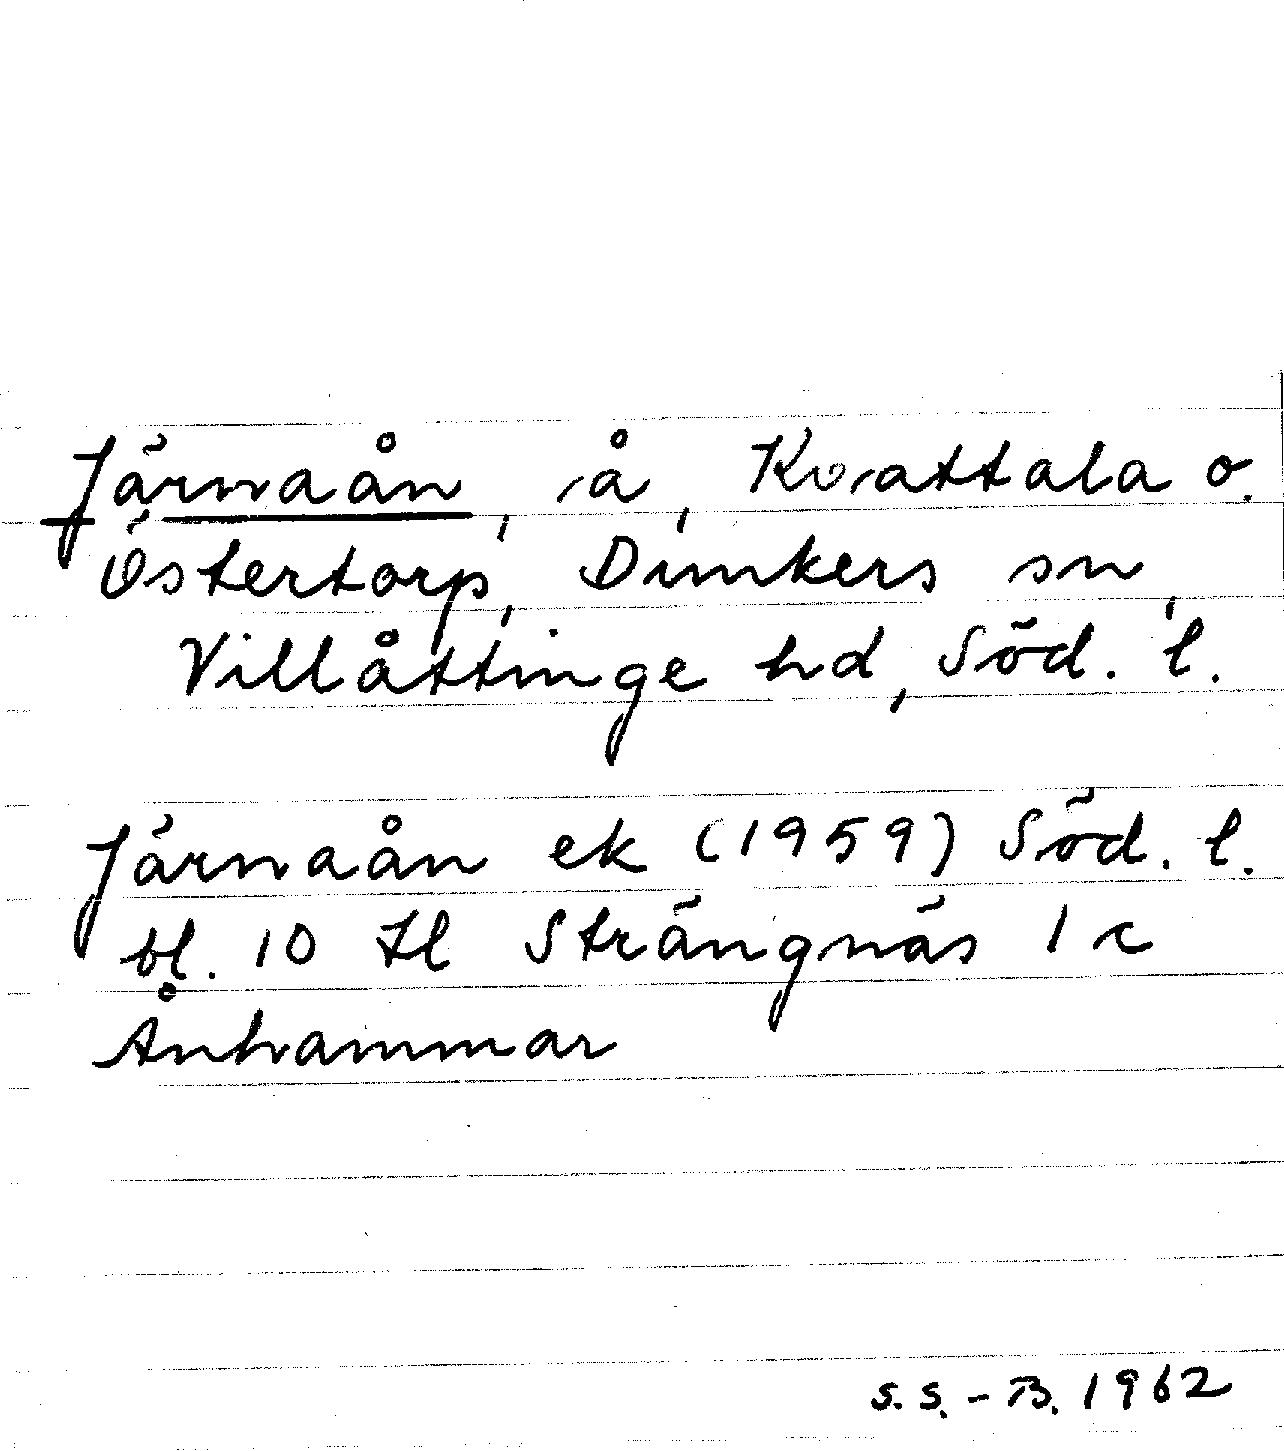 Järnaån, å, Kvattala o.
Östertorp, Dunkers sn,
Villåttinge hd, Söd. l.
Järnaån ek (1959) Söd. l.
bl. 10 tl Strängnäs 1 c
Ånhammar
S. S. - B. 1962